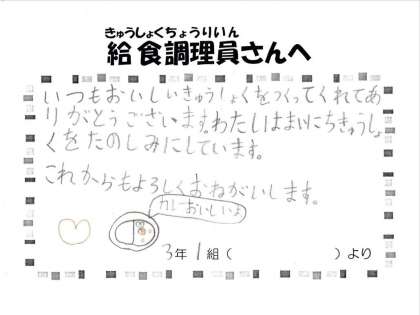 きゅうしょくちょうりいん
給食調理員さんへ
いつもおいしいきゅうしょくをつくってくれてあ
りがとうございます。わたしはまいにちきゅうしょ
くをたのしみにしています。
これからもよろしくおねがいします。
カレーおいしいよ
3年1組( )より